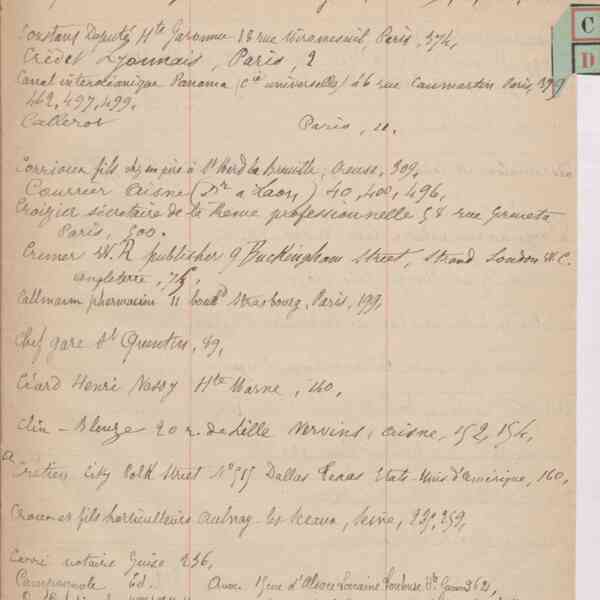 Constans Député Hte Garonne 18 rue Miromesnil, Paris, 374,
Crédit Lyonnais, Paris, 2
Canal interocéanique Panama (Cie universelle) 46 rue Caumartin Paris, 399
462, 497, 499.
Callerot Paris, 11.
fils chez son père à Creuse, 309,
Courrier Aisne (Dr à Laon) 40, 400, 496,
Croizier sécrétaire de la Revue professionnelle 58 rue Greneta
Paris, 500.
Cremer W. R publisher 9 Buckingham Street, Strand London W.C.
angleterre, 75,
Callmann pharmacien 11 bould Strasbourg, Paris, 199,
Chef gare St Quentin, 89,
Céard Henri Nassy Hte Marne, 160,
Clin - Bleuze 20 r. de Lille Vervins, aisne, 152, 154,
Crétien City Polk Street No 515 Dallas Texas Etats-Unis d'Amérique, 160,
fils horticulteurs Aulnay-les Sceaux, Seine, 235, 259,
Carré notaire Guise 236,
Campagnole Ed. rue d'Alsace Lorraine Toulouse Hte Garonne 362,
C
D